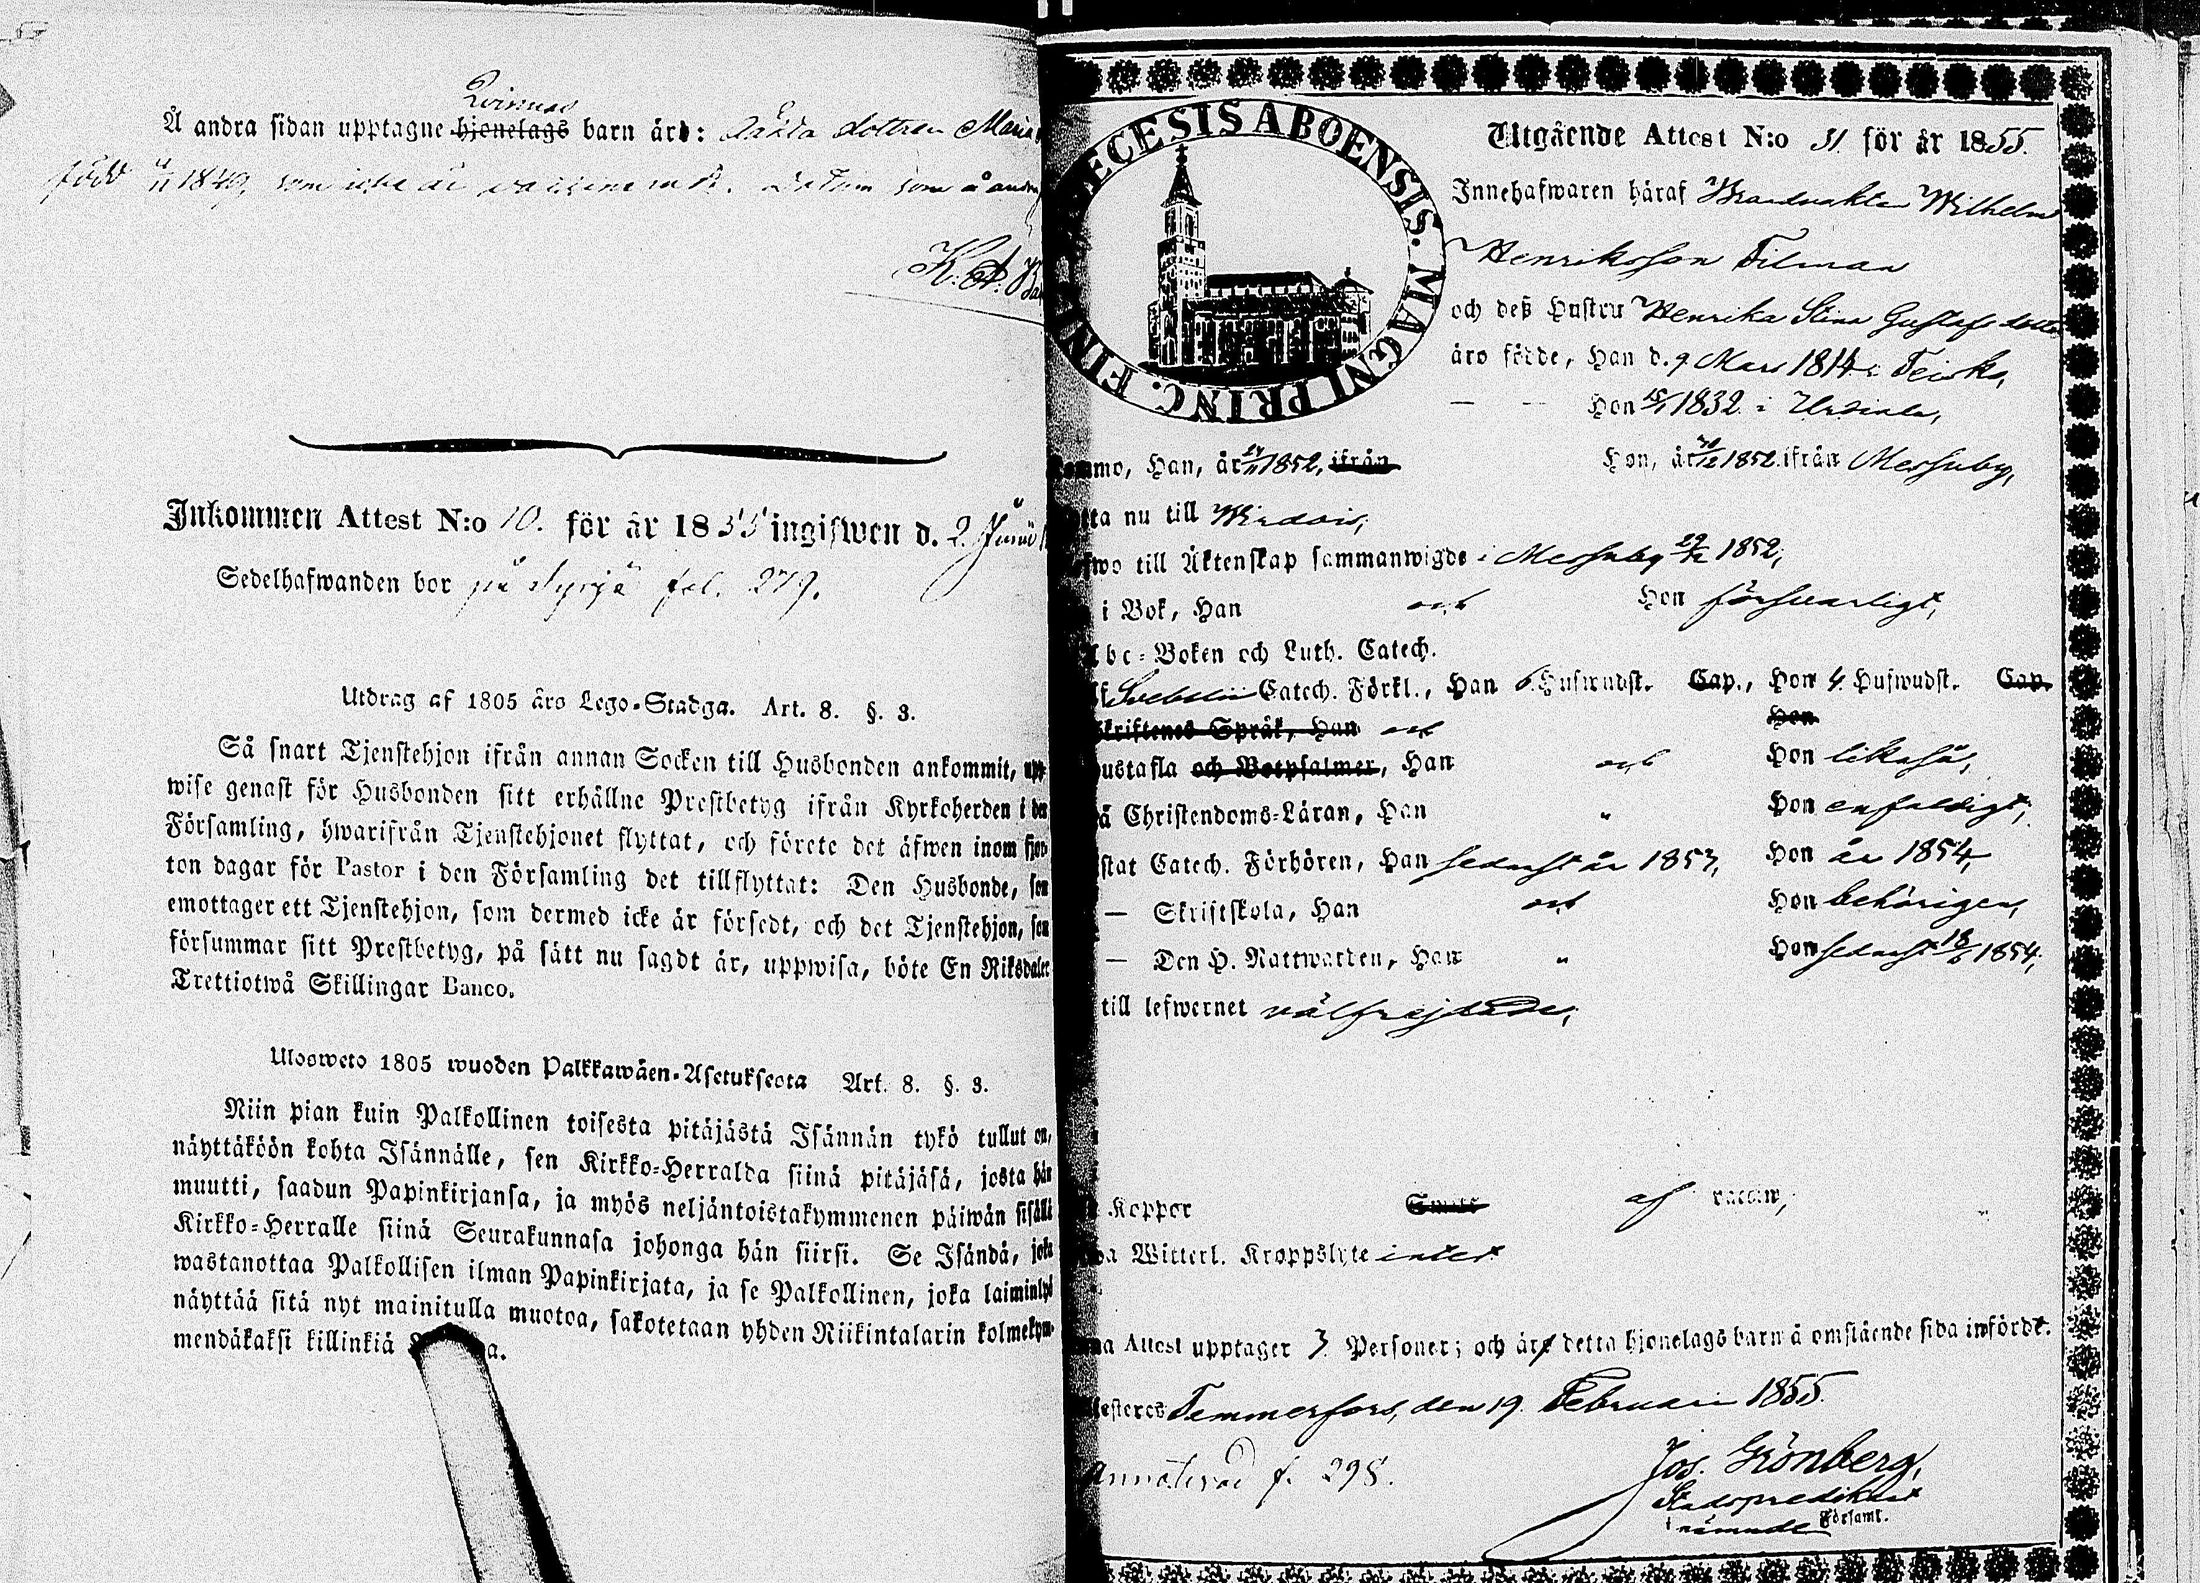 Qvinnas
Å andra sidan upptagne hjonelags barn äro: dottren Maria
född 4/11 1849, som icke är vaccinerad. Datum som å andra
K. A.
Inkommen Attest N:o 10. för år 1855 ingifwen d. 2 Junii
Sedelhafwanden bor på Syrjä fol. 279.
Utdrag af 1805 års Lego-Stadga. Art. 8. §. 3.
Så snart Tjenstehjon ifrån annan Socken till Husbonden ankommit, upp-
wise genast för Husbonden sitt erhållne Prestbetyg ifrån Kyrkoherden i den
Församling, hwarifrån Tjenstehjonet flyttat, och förete det äfwen inom fjor-
ton dagar för Pastor i den Församling det tillflyttat: Den Husbonde, som
emottager ett Tjenstehjon, som dermed icke är försedt, och det Tjenstehjon, som
försummar sitt Prestbetyg, på sätt nu sagdt är, uppwisa, böte En Riksdaler
Trettiotwå Skillingar Banco.
Ulosweto 1805 wuoden Palkkawäen-Asetuksesta Art. 8. §. 3.
Niin pian kuin Palkollinen toisesta pitäjästä Isännän tykö tullut on,
näyttäköön kohta Isännälle, sen Kirkko-Herralda siinä pitäjäsä, josta hän
muutti, saadun Papinkirjansa, ja myös neljäntoistakymmenen päiwän sisällä
Kirkko-Herralle siinä Seurakunnasa johonga hän siirsi. Se Isändä, joka
wastanottaa Palkollisen ilman Papinkirjata, ja se Palkollinen, joka laiminlyö
näyttää sitä nyt mainitulla muotoa, sakotetaan yhden Riikintalarin kolmekym-
mendäkaksi killinkiä
DIOECESIS ABOENSIS. MAGNI PRINC. FINL.
Utgående Attest N:o 31. för år 1855.
Innehafwaren häraf Brandvakten Wilhelm
Henriksson Filman
och deß Hustru Henrika Stina Gustafs dotter
äro födde, Han d. 9 Mars 1814 i Teisko,
— — Hon 15/1 1832 i Urdiala,
kommo, Han, år 24/11 1852, ifrån Hon, år 30/12 1852 ifrån Messuby,
flytta nu till Wirdois,
blefwo till Äktenskap sammanwigde i Messuby 29/12 1852,
i Bok, Han och Hon försvarligt,
Abc-Boken och Luth. Catech.
af Svebelii Catech. Förkl., Han 6. Hufwudst. Cap., Hon 4. Hufwudst. Cap.
Skriftenes Språk, Han och Hon
Hustafla och Botpsalmer, Han och Hon likaså,
på Christendoms-Läran, Han " Hon enfaldigt,
stat Catech. Förhören, Han sednast år 1853, Hon år 1854,
— Skriftskola, Han och Hon behörigen,
— Den H. Nattwarden, Han " Hon sednast 18/6 1854,
till lefwernet välfrejdade,
Koppor Smitt af vaccin,
Witterl. Kroppslyte intet
Attest upptager 3 Personer; och äro detta hjonelags barn å omstående sida införde.
Tammerfors, den 19. Februari 1855.
Annoterad f. 298.
Jos. Grönberg,
Stadspredikant
i nämnde Församl.